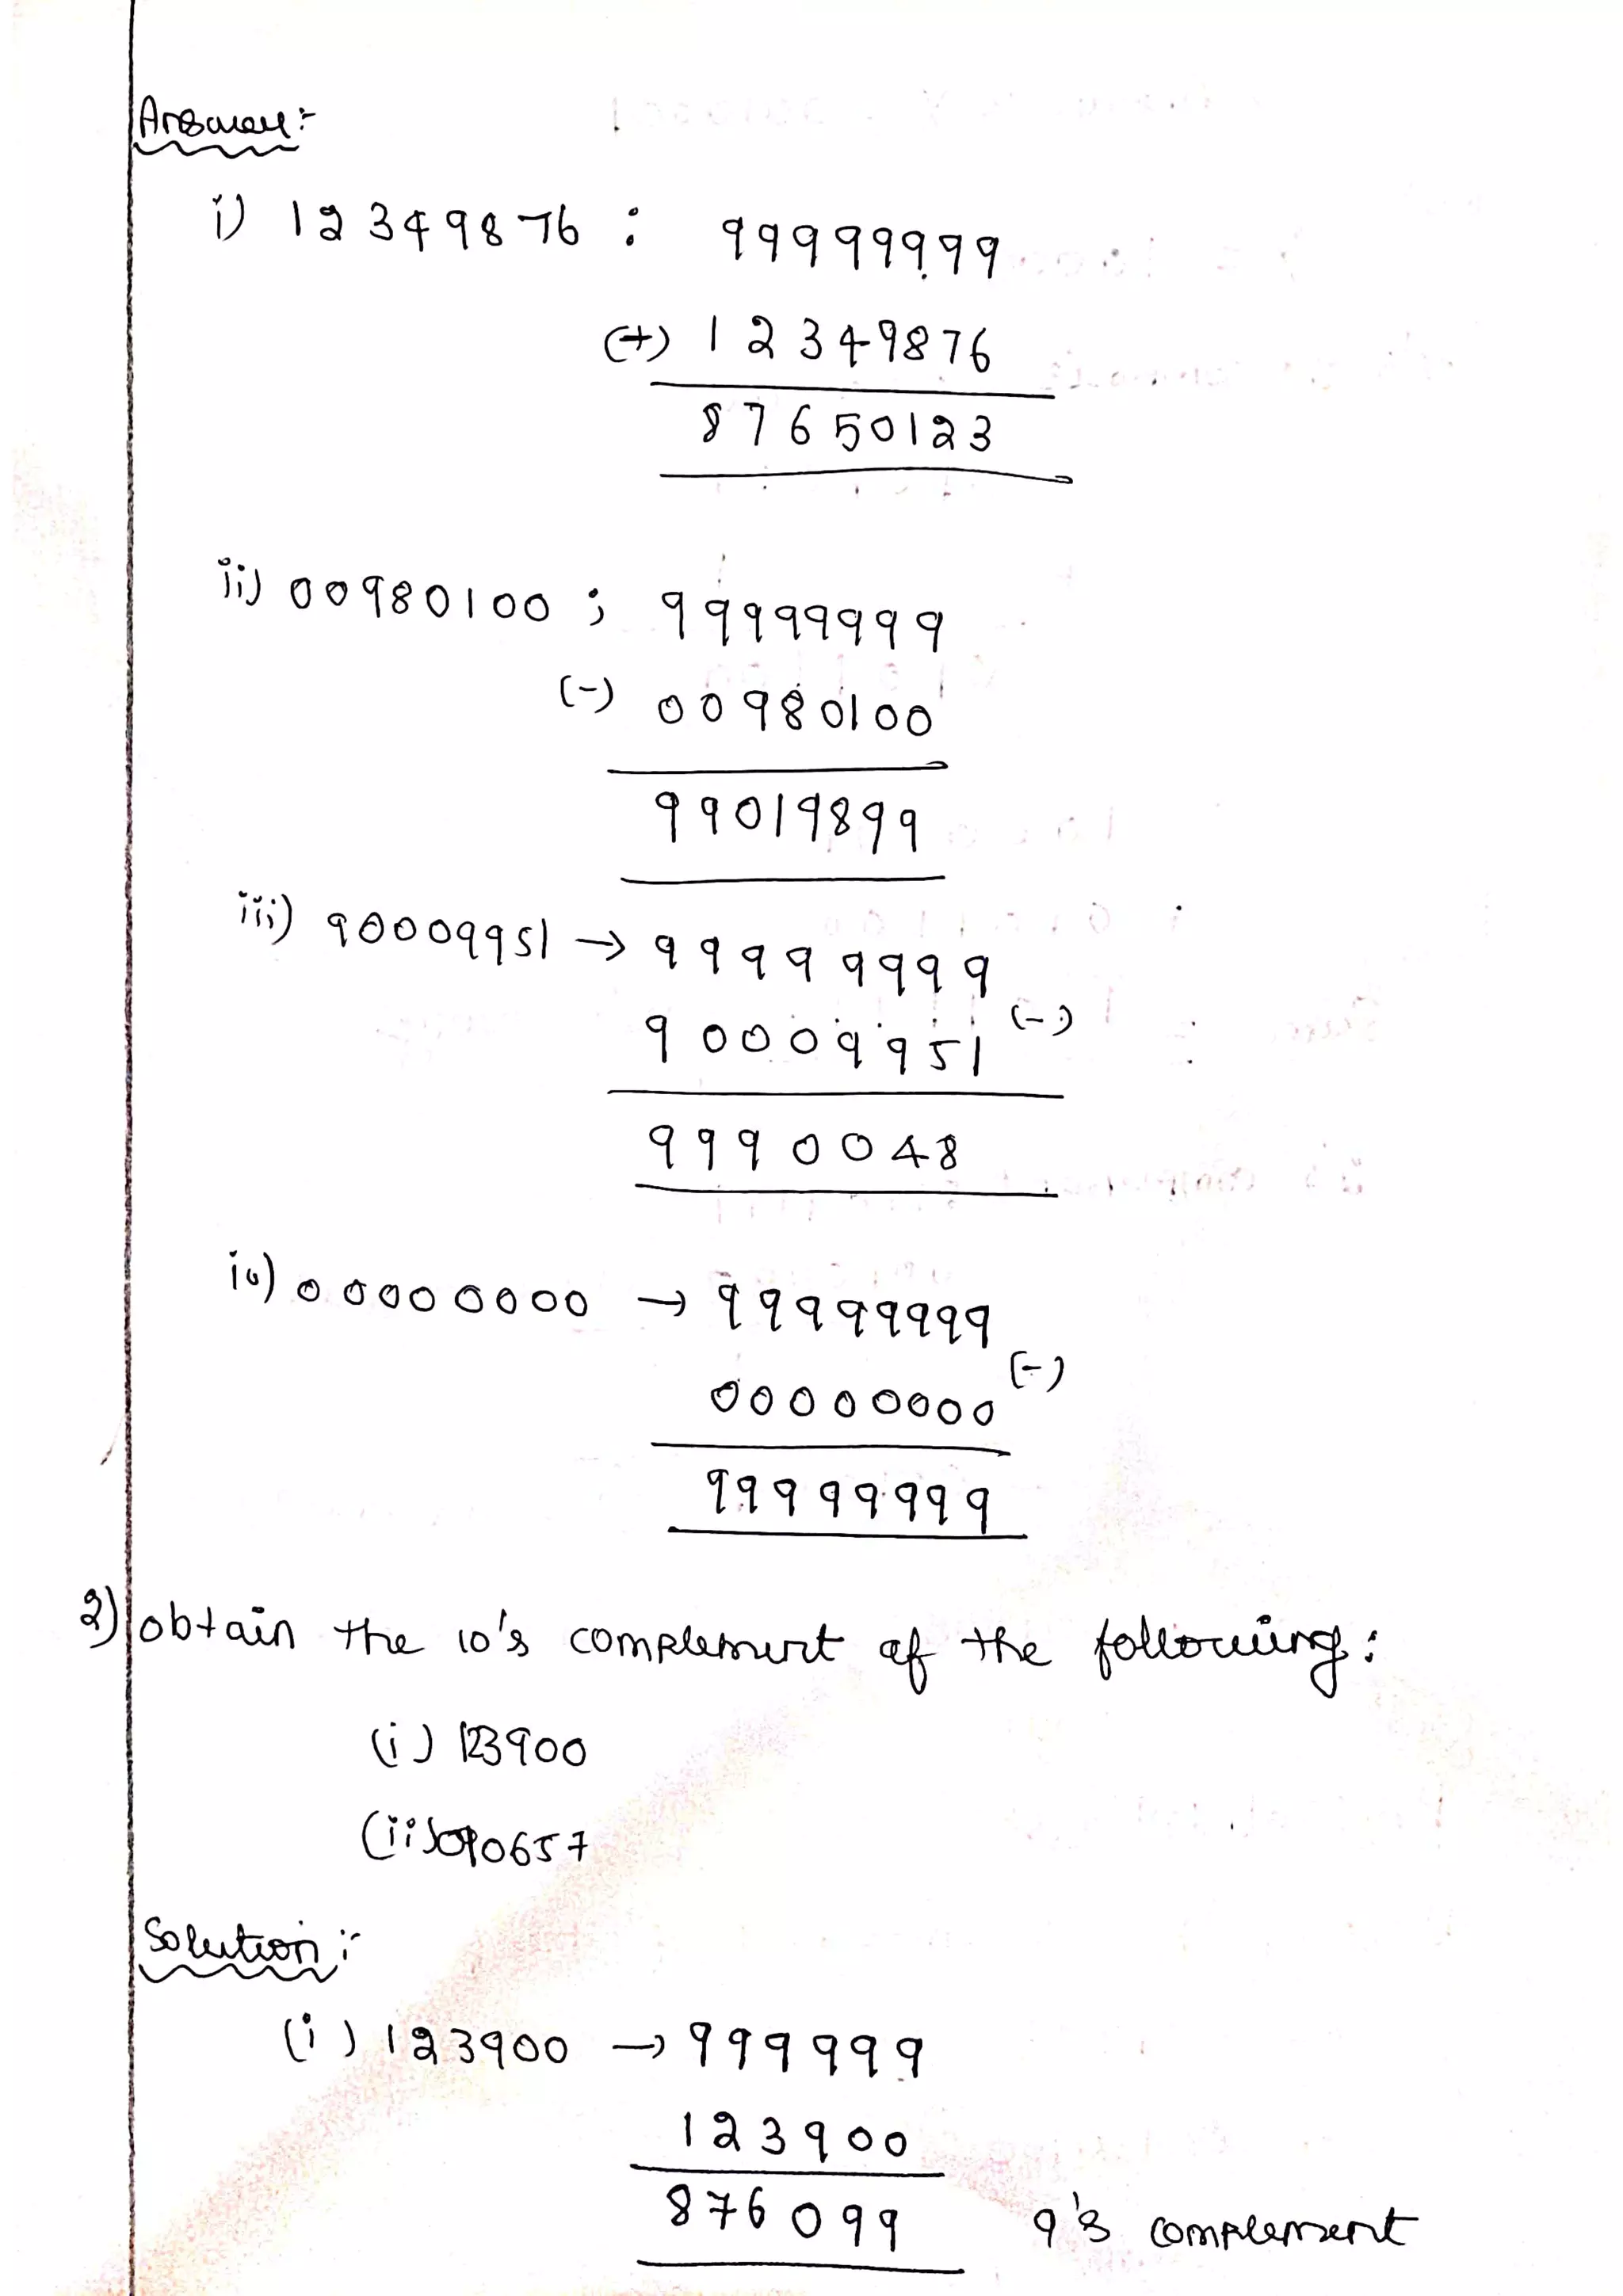 Answer:-
i) 12349876 : 99999999
(+) 12349876
87650123
ii) 00980100 ; 99999999
(-) 00980100
99019899
iii) 90009951 → 99999999
90009951 (-)
9990048
iv) 00000000 → 99999999
00000000 (-)
99999999
2) obtain the 10's complement of the following :
(i) 123900
(ii) 090657
Solution :-
(i) 123900 → 999999
123900
876099 9's complement